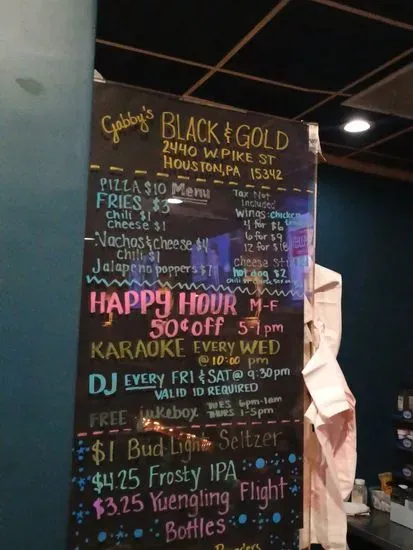 Gabby's
BLACK & GOLD
2440 W. PIKE ST
HOUSTON, PA 15342
PIZZA $10 Menu
FRIES $3
chili $1
cheese $1
Nachos & cheese $4
chili $1
Jalapeno poppers $7
Tax Not
Included
Wings: chicken
4 for $6
6 for $9
12 for $18
cheese St
hot dog $2
HAPPY HOUR M-F
50¢ off 5-7 pm
KARAOKE EVERY WED
@ 10:00 pm
DJ EVERY FRI & SAT @ 9:30 pm
VALID ID REQUIRED
FREE jukebox TUES 6pm-1am
THURS 1-5pm
$1 Bud Light Seltzer
$4.25 Frosty IPA
$3.25 Yuengling Flight
Bottles